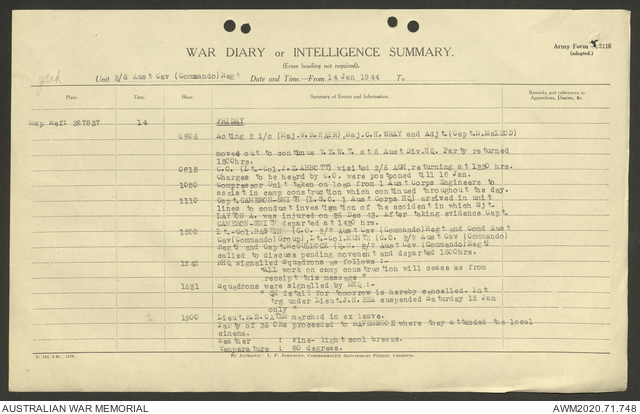 WAR DIARY or INTELLIGENCE SUMMARY.
(Erase heading not required).
Army Form C 2118
(adapted.)
Unit 2/6 Aust Cav (Commando) Regt Date and Time—From 14 Jan 1944 To
Place. Date. Hour. Summary of Events and Information. Remarks and references to Appendices, Diaries, &c.
Map Ref: 387837 14 FRIDAY
0806 Acting 2 i/c (Maj.W.R. Maj.C.H. WRAY and Adjt.(Capt.R.McLEOD)
moved out to continue T.E.W.T. at 6 Aust Div.HQ. Party returned
1800hrs.
0815 C.O. (Lt.-Col.J.E.ABBOTT) visited 2/6 AGH, returning at 1230 hrs.
Charges to be heard by C.O. were postponed till 18 Jan.
1050 Compressor Unit taken on loan from 1 Aust Corps Engineers to
assist in camp construction which continued throughout the day.
1110 Capt.CAMERON-SMITH (L.S.O. 1 Aust Corps HQ) arrived in unit
lines to conduct investigation of the accident in which Sjt.
LAYTON A. was injured on 26 Dec 43. After taking evidence Capt.
CAMERON-SMITH departed at 1430 hrs.
1500 Lt.-Col. (C.O. 2/7 Aust Cav (Commando) Regt and Comd Aust
Cav(Commando) Group), Lt.-Col. (C.O. 2/9 Aust Cav (Commando)
Regt) and Capt. (Q.M. 2/7 Aust Cav (Commando) Regt)
called to discuss pending movement and departed 1600hrs.
RHQ signalled Squadrons as follows :-
"ALL work on camp construction will cease as from
receipt this message "
1621 Squadrons were signalled by RHQ :-
" QM detail for tomorrow is hereby cancelled. Int
trg under Lieut.J.N. REA suspended Saturday 15 Jan
only "
1900 Lieut.R.B. marched in ex leave.
Party of 36 ORs proceeded to RAVENSHOE where they attended the local
cinema.
Weather : Fine- light cool breeze.
Temperature : 80 degrees.
By Authority : L. F. Johnston, Commonwealth Government Printer, Canberra.
AUSTRALIAN WAR MEMORIAL AWM2020.71.748